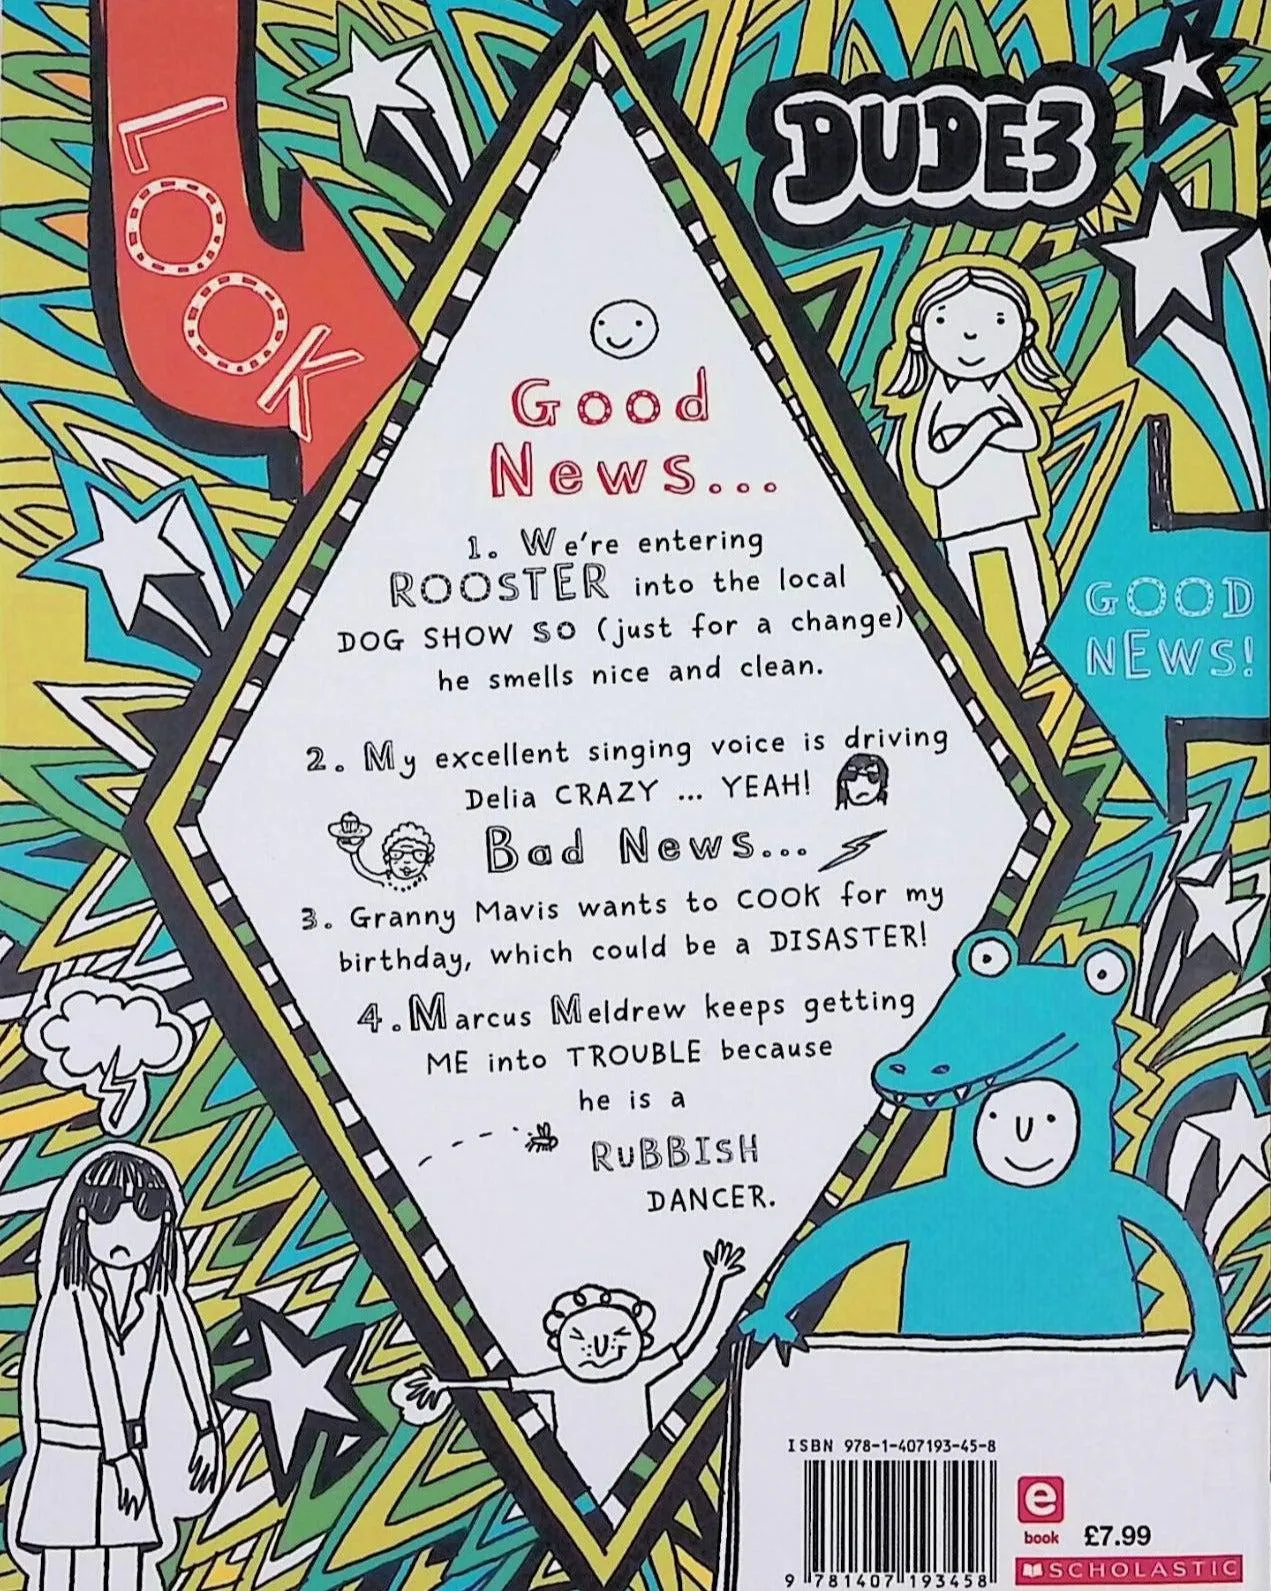 LOOK
DUDE3
Good
News...
1. We're entering
ROOSTER into the local
DOG SHOW SO (just for a change)
he smells nice and clean.
GOOD
NEWS!
2. My excellent singing voice is driving
Delia CRAZY ... YEAH!
Bad News...
3. Granny Mavis wants to COOK for my
birthday, which could be a DISASTER!
4. Marcus Meldrew keeps getting
ME into TROUBLE because
he is a
RUBBISH
DANCER.
ISBN 978-1-407193-45-8
9 781407 193458
e
book
£7.99
SCHOLASTIC